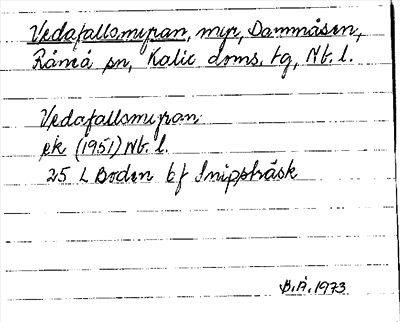 Vedafallsmyran, myr, Dammåsen,
Råneå sn, Kalix doms. tg, Nb. l.
Vedafallsmyran
ek (1951) Nb. l.
25 L Boden bf Snippträsk
B.Å. 1973